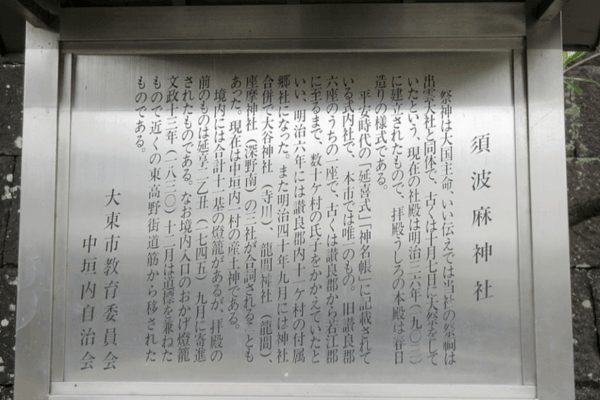 須波麻神社
祭神は大国主命、いい伝えでは当社の祭祠は
出雲大社と同体で、古くは十月七日に大祭をして
いたという、現在の社殿は明治三六年(一九〇三)
に建立されたもので、拝殿うしろの本殿は春日
造りの様式である。
平安時代の「延喜式」「神名帳」に記載されて
いる式内社で、本市では唯一のもの。旧讃良郡
六座のうちの一座で、古くは讃良郡から若江郡
に至るまで、数十ヶ村の氏子をかかえていたと
いい、明治六年には讃良郡内十一ヶ村の付属
郷社になった。また明治四十年九月には神社
合併で大谷神社(寺川)、龍間神社(龍間)、
座摩神社(深野南)の三社が合祠されることも
あった。現在は中垣内一村の産土神である。
境内には合計十一基の燈籠があるが、拝殿の
前のものは延享二乙丑(一七四五)九月に寄進
されたものである。なお境内入口のおかげ燈籠
文政十三年(一八三〇)十二月は道標を兼ねた
もので近くの東高野街道筋から移された
ものである。
大東市教育委員会
中垣内自治会